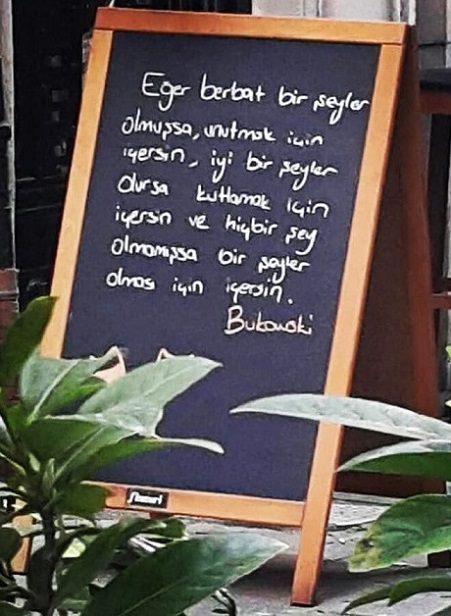 Eger berbat bir şeyler
olmuşsa, unutmak için
içersin, iyi bir şeyler
olursa kutlamak için
içersin ve hiçbir şey
olmamışsa bir şeyler
olması için içersin.
Bukowski